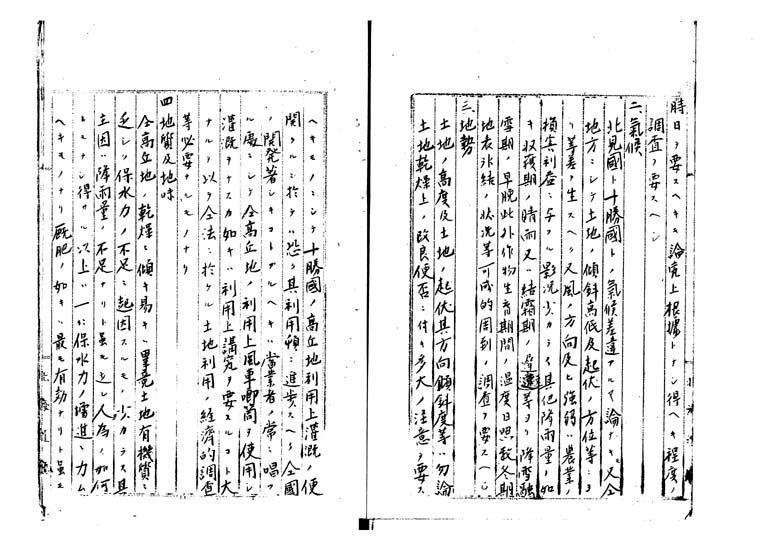 時日ヲ要スヘキモ論究上根據トナシ得ヘキ程度ノ
調査ヲ要スヘシ
二 氣候
北見國ト十勝國トノ氣候差違アルヤ論ナキモ又全
地方ニシテ土地ノ傾斜高低及起伏ノ方位等ニヨ
リ等差ヲ生スヘク又風ノ方向及ヒ強弱ハ農業ノ
損害利益ニ与フル影況少カラス其他降雨量ノ如
キ收穫期ノ晴雨又ハ結霜期ノ遲速等ヨリ降雪融
雪期ノ早晩此外作物生育期間ノ温度日照政冬期
地表氷結ノ状況等可成的周到ノ調査ヲ要スヘシ
三 地勢
土地ノ高度及土地ノ起伏其方向傾斜度等ハ勿論
土地乾燥上ノ改良便否ニ付キ多大ノ注意ヲ要ス
ヘキモノニシテ十勝國ノ高丘地利用上灌漑ノ便
開クルニ於テハ恐ク其利用頓ニ進歩スヘク全國
ノ開発著シキコトアルヘキハ當業者ノ常ニ唱フ
ル處ニシテ全高丘地ノ利用上風車喞筒ヲ使用シ
灌漑ヲナスカ如キハ利用上講究ヲ要スルコト大
ナルヲ以ク全法ニ於ケル土地利用ノ経済的調査
等必要アルモノナリ
四 地質及地味
全高丘地ノ乾燥ニ傾キ易キハ畢竟土地有機質ニ
乏シク保水力ノ不足ニ起因スルモノ少カラス其
主因ハ降雨量ノ不足ナリト虽モ乏シ人為ノ如何
トモナシ得サル以上ハ一ニ保水力ノ増進ニ力ム
ヘキモノナリ厩肥ノ如キハ最モ有効ナリト虽モ